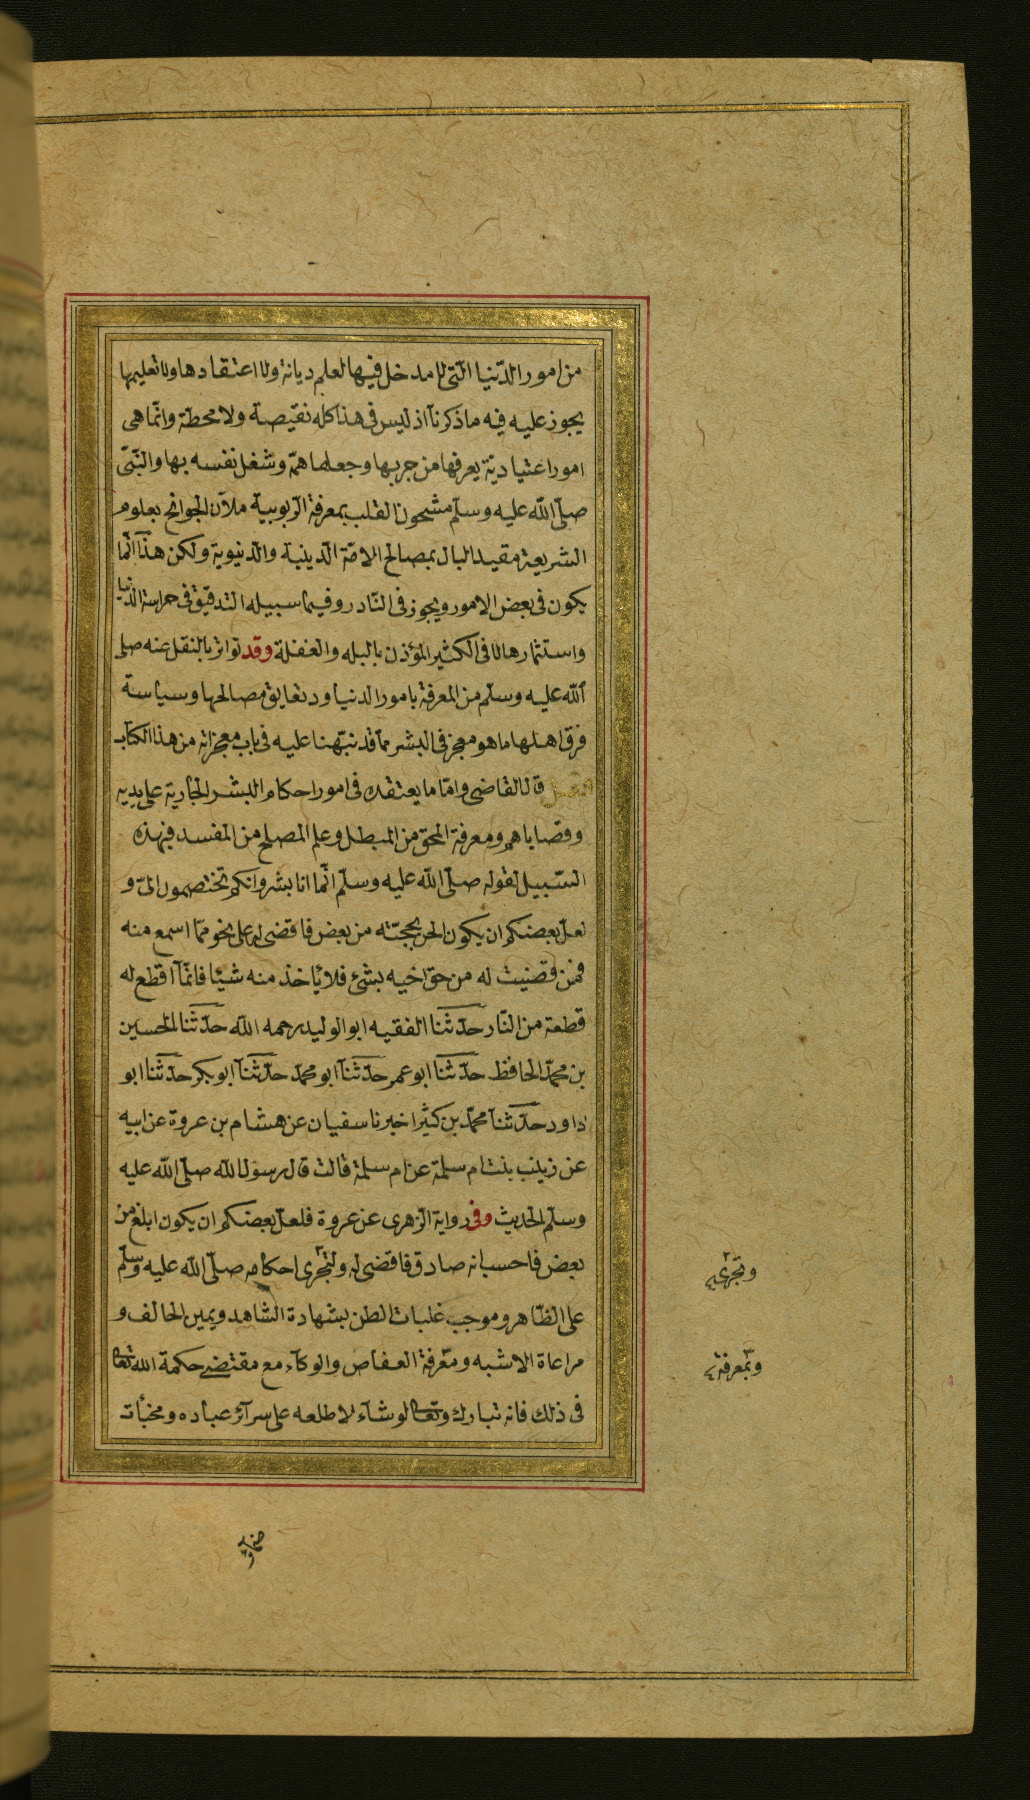 من امور الدّنيا الّتى لا مدخل فيها لعلم ديانة ولا اعتقادها ولا تعليمها
يجوز عليه فيه ما ذكرنآ اذ ليس فى هذا كله نقيصة ولا محطة وانّما هى
امور اعتيادية يعرفها من جربها وجعلها همّه وشغل نفسه بها والنّبىّ
صلّى الله عليه وسلّم مشحون القلب بمعرفة الرّبوبية ملآن الجوانح بعلوم
الشريعة مقيد البال بمصالح الامّة الدّينية والدّنيوية ولكن هذآ انّما
يكون فى بعض الامور ويجوز فى النّادر وفيما سبيله التدقيق فى حراسة الدّنيا
واستثمارها لا فى الكثير المؤذن بالبله والغفلة وقد تواتر بالنقل عنه صلى
الله عليه وسلّم من المعرفة بامور الدنيا ودقايق مصالحها وسياسة
فرق اهلها ما هو معجز فى البشر مما قد نبّهنا عليه فى باب معجزاته من هذا الكتاب
فصل قال القاضى وامّا ما يعتقده فى امور احكام البشر الجارية على يديه
وقضاياهم ومعرفة المحق من المبطل وعلم المصلح من المفسد فبهذه
السّبيل لقوله صلّى الله عليه وسلّم انّما انا بشر وانكم تختصمون الىّ و
لعلّ بعضكم ان يكون الحن بحجّته من بعض فاقضى له على نحو ممّا اسمع منه
فمن قضيت له من حق اخيه بشئ فلا يأخذ منه شيئا فانّمآ اقطع له
قطعة من النّار حدّثنا الفقيه ابو الوليد رحمه الله حدّثنا الحسين
بن محمّد الحافظ حدّثنآ ابو عمر حدّثنآ ابو محمّد حدّثنآ ابو بكر حدّثنآ ابو
داود حدّثنآ محمّد بن كثير اخبرنا سفيان عن هشام بن عروة عن ابيه
عن زينب بنت ام سلمة عن ام سلمة قالت قال رسول الله صلّى الله عليه
وسلّم الحديث وفى رواية الزّهرى عن عروة فلعلّ بعضكم ان يكون ابلغ من
بعض فاحسب انه صادق فاقضى له ولتجرى احكامه صلّى الله عليه وسلّم
على الظّاهر وموجب غلبات الظن بشهادة الشاهد ويمين الحالف و
مراعاة الاشبه ومعرفة العفاص والوكآء مع مقتضى حكمة الله تعالى
فى ذلك فانه تبارك وتعالى لو شآء لاطلعه على سرآئر عباده ومخبأت
وتجرى
وبمعرفة